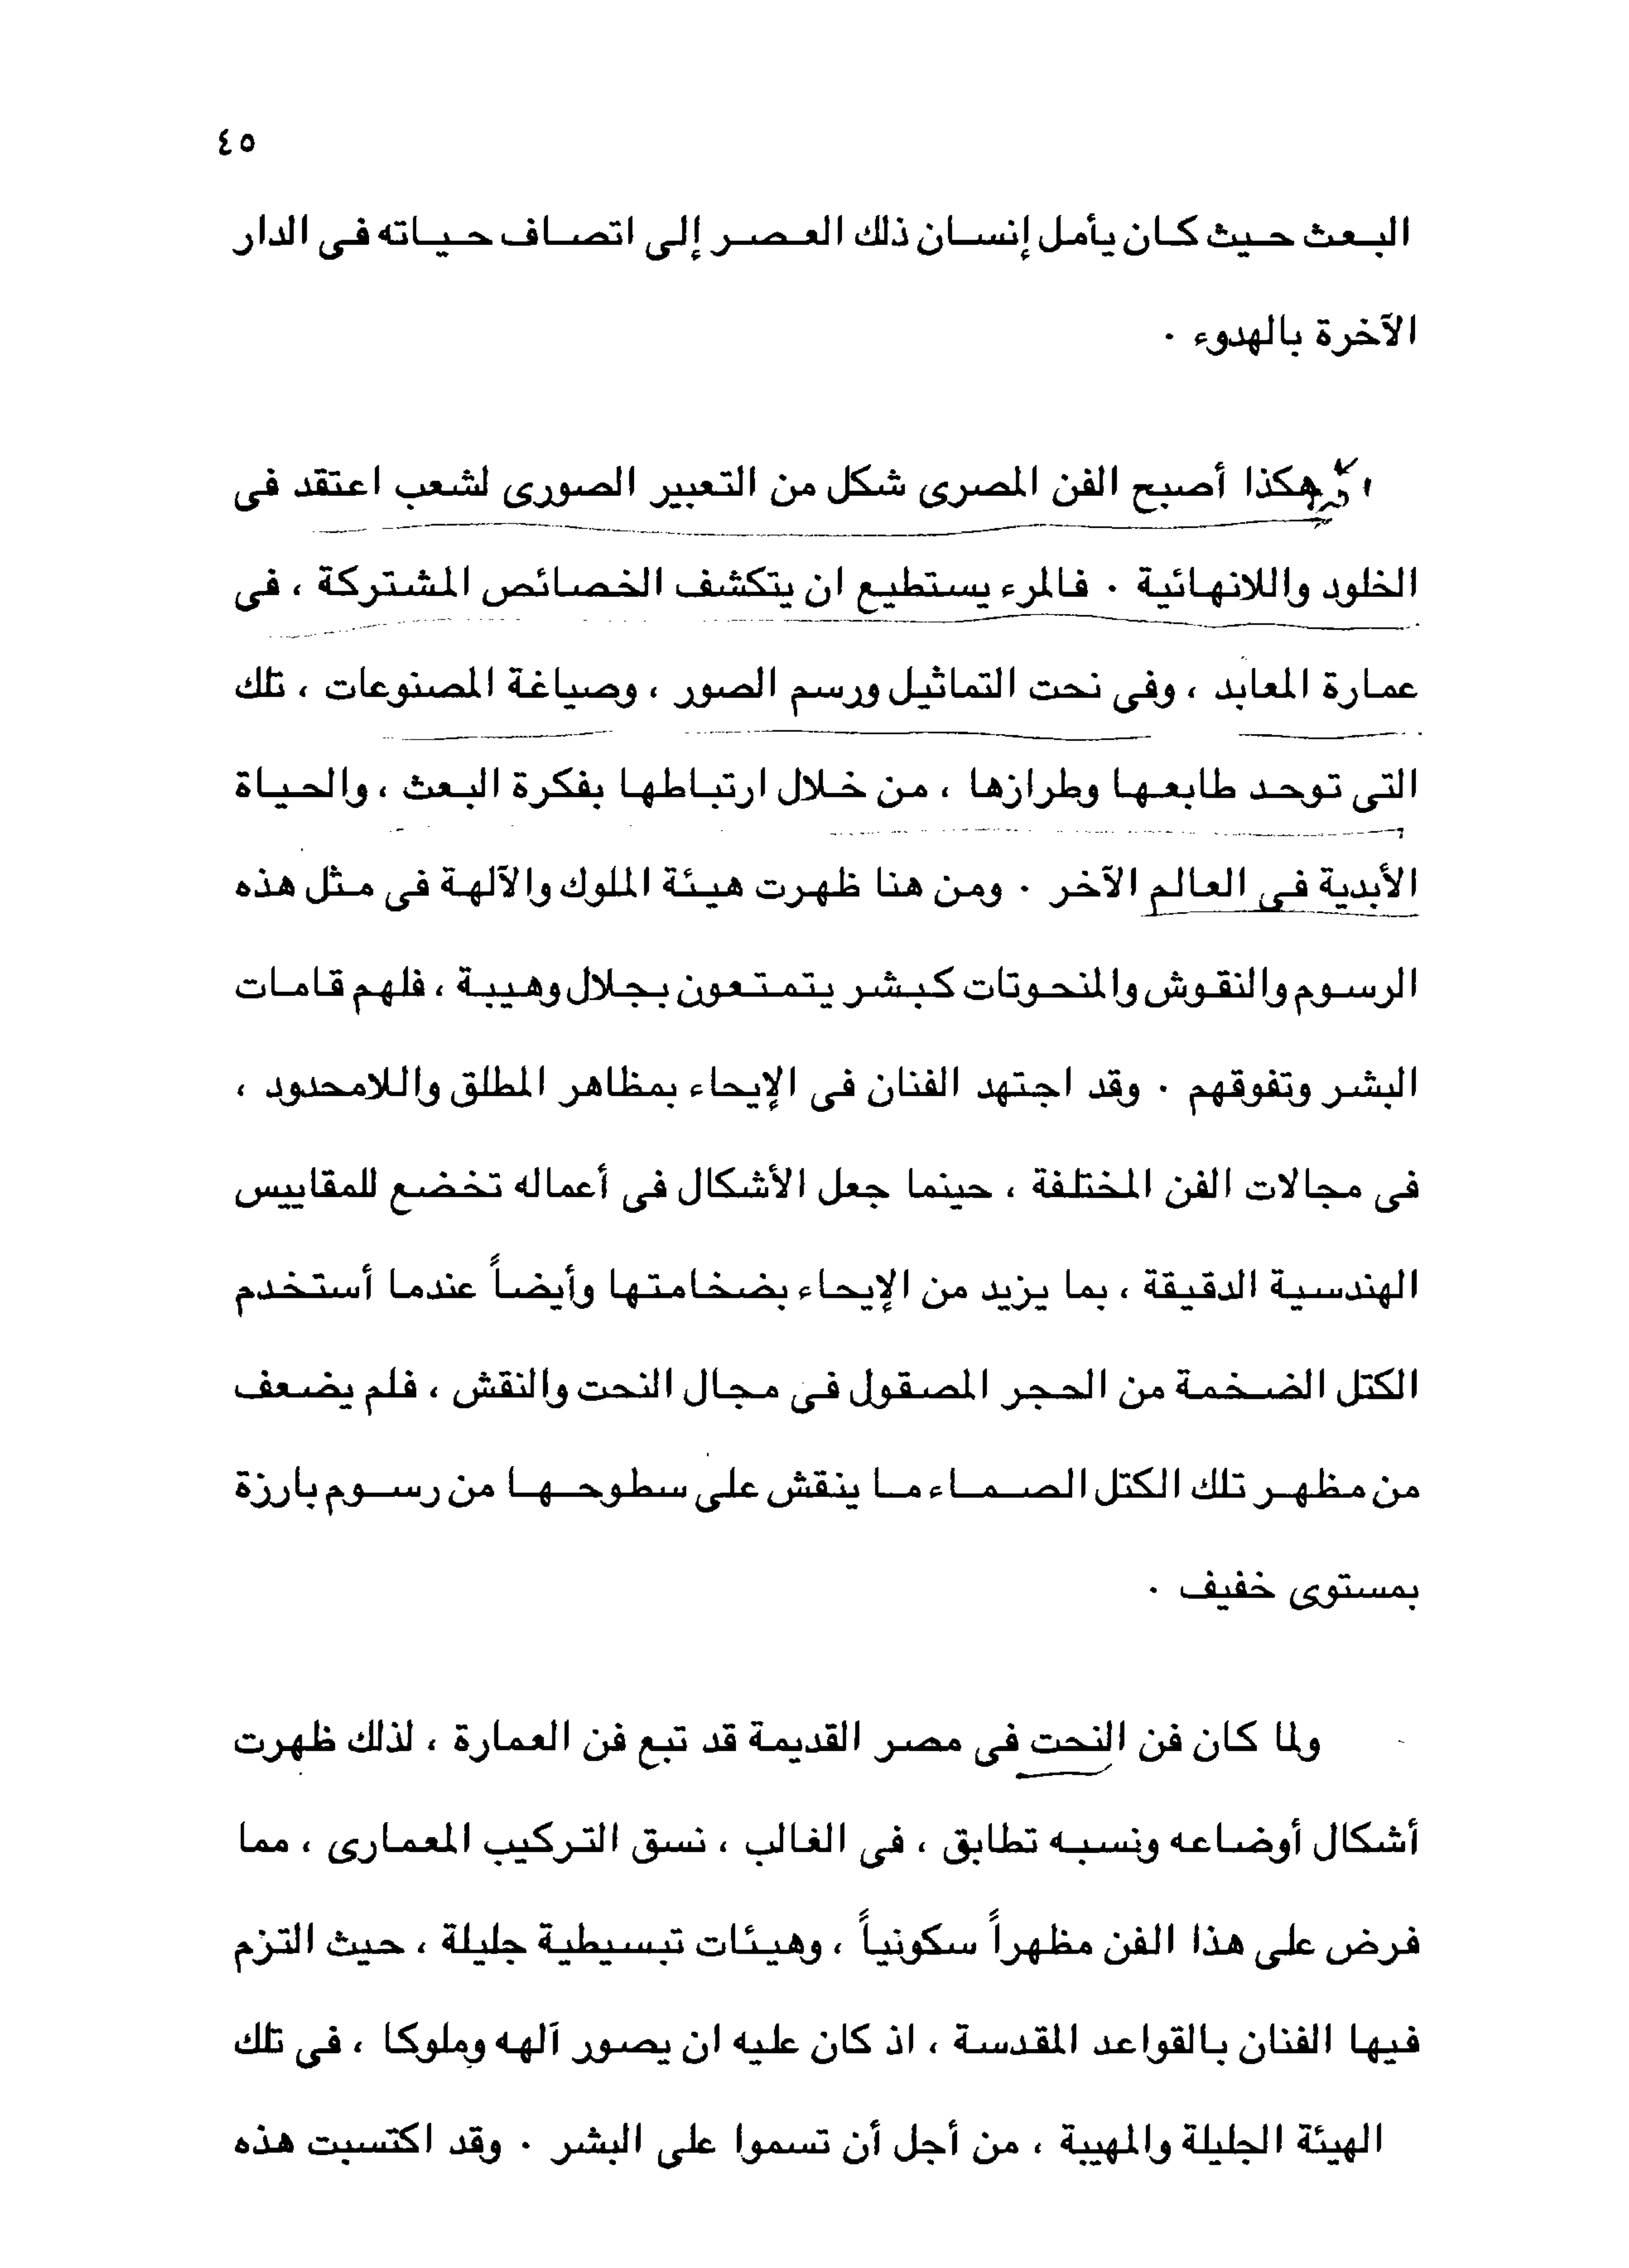 ٤٥
البعث حيث كان يأمل إنسان ذلك العصر إلى اتصاف حياته فى الدار
الآخرة بالهدوء .
هكذا أصبح الفن المصرى شكل من التعبير الصورى لشعب اعتقد فى
الخلود واللانهائية . فالمرء يستطيع ان يتكشف الخصائص المشتركة ، فى
عمارة المعابد ، وفى نحت التماثيل ورسم الصور ، وصياغة المصنوعات ، تلك
التى توحد طابعها وطرازها ، من خلال ارتباطها بفكرة البعث ، والحياة
الأبدية فى العالم الآخر . ومن هنا ظهرت هيئة الملوك والآلهة فى مثل هذه
الرسوم والنقوش والمنحوتات كبشر يتمتعون بجلال وهيبة ، فلهم قامات
البشر وتفوقهم . وقد اجتهد الفنان فى الإيحاء بمظاهر المطلق واللامحدود ،
فى مجالات الفن المختلفة ، حينما جعل الأشكال فى أعماله تخضع للمقاييس
الهندسية الدقيقة ، بما يزيد من الإيحاء بضخامتها وأيضاً عندما أستخدم
الكتل الضخمة من الحجر المصقول فى مجال النحت والنقش ، فلم يضعف
من مظهر تلك الكتل الصماء ما ينقش على سطوحها من رسوم بارزة
بمستوى خفيف .
ولما كان فن النحت فى مصر القديمة قد تبع فن العمارة ، لذلك ظهرت
أشكال أوضاعه ونسبه تطابق ، فى الغالب ، نسق التركيب المعمارى ، مما
فرض على هذا الفن مظهراً سكونياً ، وهيئات تبسيطية جليلة ، حيث التزم
فيها الفنان بالقواعد المقدسة ، اذ كان عليه ان يصور آلهه وملوكا ، فى تلك
الهيئة الجليلة والمهيبة ، من أجل أن تسموا على البشر . وقد اكتسبت هذه